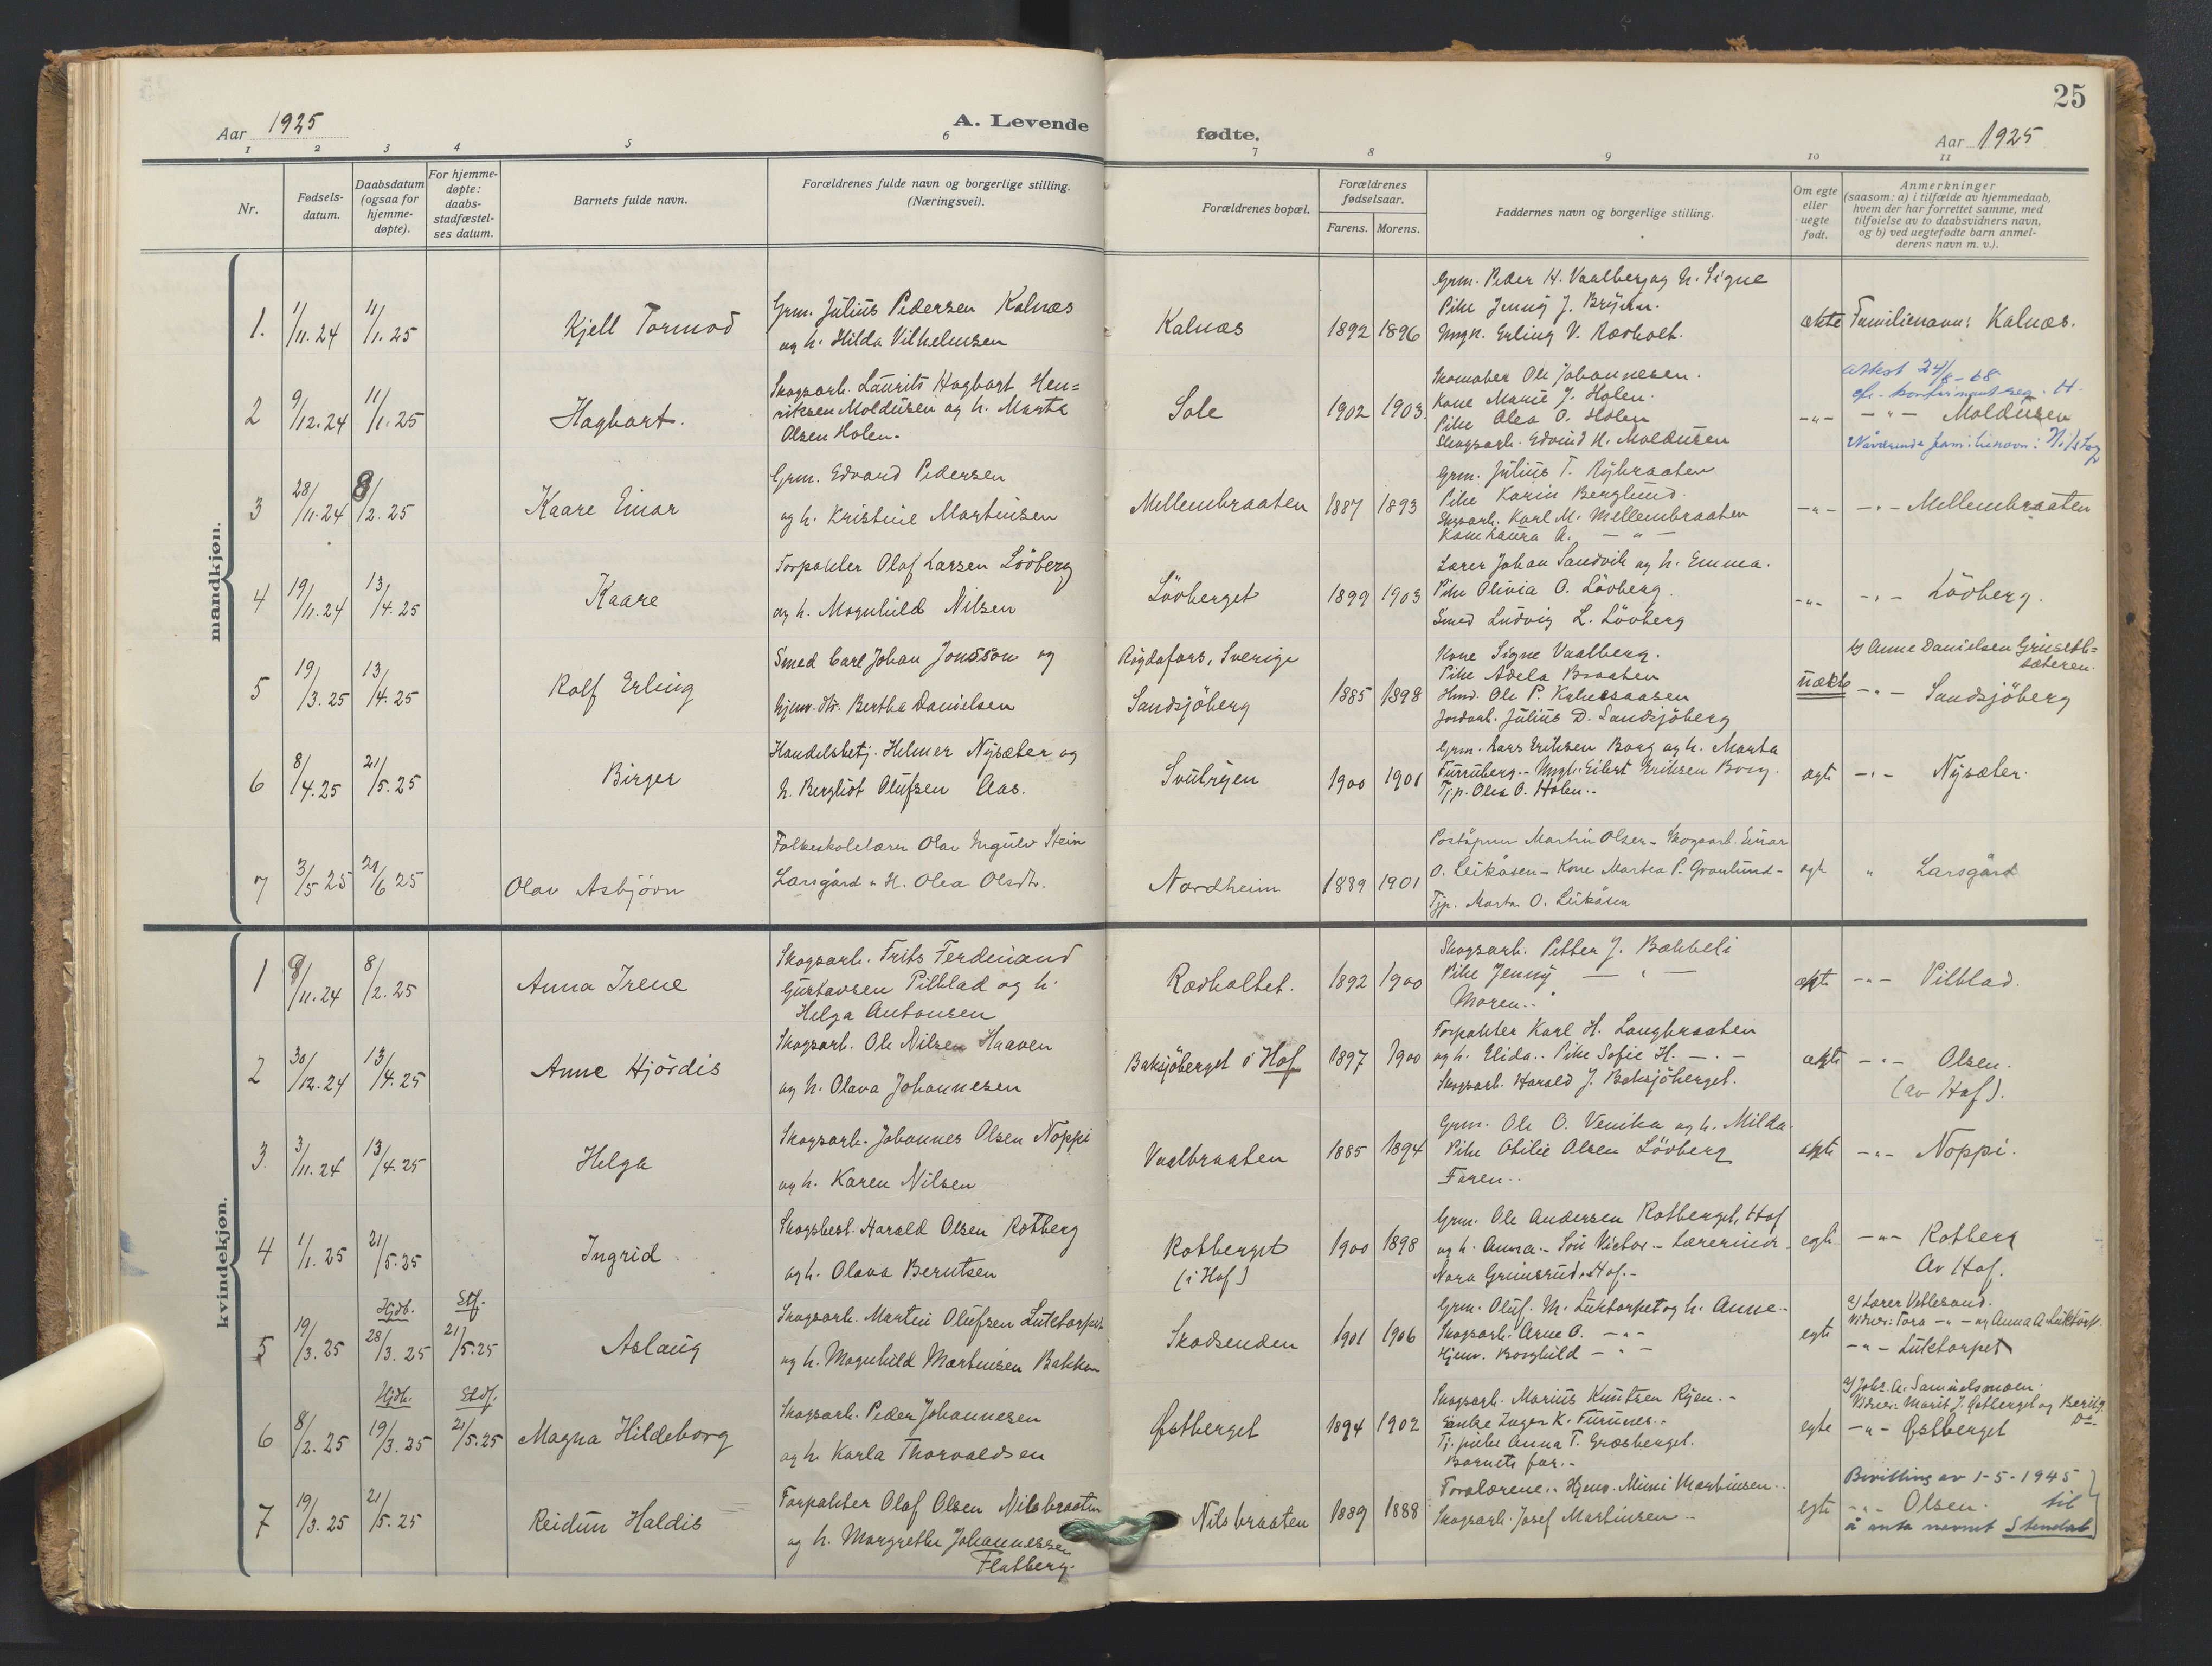 25
Aar 1925
A. Levende
fødte.
Aar 1925
1 2 3 4 5 6 7 8 9 10 11
Nr.
Fødsels-
datum.
Daabsdatum
(ogsaa for
hjemme-
døpte).
For hjemme-
døpte:
daabs-
stadfæstel-
ses datum.
Barnets fulde navn.
Forældrenes fulde navn og borgerlige stilling.
(Næringsvei).
Forældrenes bopæl.
Forældrenes
fødselsaar.
Farens. Morens.
Faddernes navn og borgerlige stilling.
Om egte
eller
uegte
født.
Anmerkninger
(saasom: a) i tilfælde av hjemmedaab,
hvem der har forrettet samme, med
tilføielse av to daabsvidners navn,
og b) ved uegtefødte barn anmel-
derens navn m. v.).
mandkjøn.
1. 1/11.24 11/1.25 Kjell Tormod
Grm. Julius Pedersen Kalnæs
og h. Hilda Vilhelmsen
Kalnæs 1892 1896
Grm. Peder H. Vaalberg og h. Signe
Pike Jenny J.
Ungk. Erling V. Rødholt.
ækte Familienavn: Kalnæs.
2 9/12.24 11/1.25 Hagbart.
Skogsarb. Laurits Hagbart Hen=
riksen Moldusen og h. Marte
Olsen Holen.
Sole 1902 1903.
Skomaker Ole Johannesen.
Kone Marie J. Holen.
Pike Olea O. Holen
Skogsarb. Edvind H. Moldusen
-"-
Attest 24/8-68
-"- Moldusen
Nåværende familienavn:
3 28/11.24 8/2.25 Kaare Einar
Grm. Edvard Pedersen
og h. Kristine Martinsen
Mellembraaten 1887 1893
Grm. Julius T. Nybraaten
Pike Karin Berglund.
Skogsarb. Karl M. Mellembraaten
Kone Laura A. -"-
-"- -"- Mellembraaten
4 19/11.24 13/4.25 Kaare
Forpakter Olaf Larsen Lövberg
og h. Magnhild Nilsen
Lövberget 1899 1903
Lærer Johan Sandvik og h. Emma.
Pike Olivia O. Lövberg.
Smed Ludvig L. Lövberg
-"- -"- Lövberg.
5 19/3.25 13/4.25 Rolf Erling
Smed Carl Johan Jonsson og
hjemv. dtr. Bertha Danielsen
Røgdafors, Sverige
Sandsjöberg 1885 1898
Kone Signe Vaalberg.
Pike Adela Braaten
Hmd. Ole P. Kalnesaasen
Jordarb. Julius D. Sandsjöberg
uækte
Anne Danielsen Grusetb=
sæteren.
-"- Sandsjöberg
6 8/4.25 21/5.25 Birger
Handelsbetj. Helmer Nysæter og
h. Bergliot Olufsen Aas.
Svulryen 1900 1901
Grm. Lars Eriksen Borg og h. Marta
Furruberg.- Ungk. Eilert Eriksen Borg.
Tj.p. Olea O. Holen.-
egte -"- Nysæter.
7 3/5 25 21/6 25 Olav Asbjörn
Folkeskolelærer Olav Ingulv Stein
Larsgård og H. Olea Olsdtr.
Nordheim 1889 1901
Poståpner Martin Olsen - Skogsarb. Einar
O. Leikåsen - Kone Martea P. Granlund -
Tjp. Marta O. Leikåsen
egte " Larsgård
kvindekjøn.
1 9/11.24 8/2.25 Anna Irene
Skogsarb. Frits Ferdinand
Gustavsen Pilblad og h.
Helga Antonsen
Rødholtet. 1892 1900
Skogsarb. Petter J. Bakkeli
Pike Jenny -"-
Moren..
ækte -"- Pilblad.
2 30/12.24 13/4.25 Anne Hjördis
Skogsarb. Ole Nilsen Haaven
og h. Olava Johannesen
Baksjöberget i Hof 1897 1900
Forpakter Karl H. Langbraaten
og h. Elida.. Pike Sofie H. -"-
Skogsarb. Harald J. Baksjöberget.
ækte -"- Olsen.
(av Hof).
3. 3/11.24 13/4.25 Helga
Skogsarb. Johannes Olsen Noppi
og h. Karen Nilsen
Vaalbraaten 1885 1894
Grm. Ole O. Venika og h. Milda.
Pike Otilie Olsen Lövberg
Faren..
ækte -"- Noppi.
4 1/1.25 21/5.25 Ingrid
Skogsbest. Harald Olsen Rotberg
og h. Olava Berntsen
Rotberget
(i Hof) 1900 1898
Grm. Ole Andersen Rotberget, Hof
og h. Anna.- Sön Victor.- Lærerinde
Nora Grinsrud, Hof.-
egte -"- Rotberg
Av Hof.
5 19/3.25 Hjdb. 28/3.25 Stf. 21/5.25 Aslaug
Skogsarb. Martin Olufsen Luktorpet
og h. Magnhild Martinsen Bakken
Skadsenden 1901 1906
Grm. Oluf. M. Luktorpet og h. Anne.-
Skogsarb. Arne O. -"-
Hjemv. Borghild -"-
egte
Lærer Vetlesand.
Vidner: Tora -"- og Anna A. Luktorp.
-"- Luktorpet
6 8/2.25 Hjdb. 19/3.25 Stdf. 21/5.25 Magna Hildeborg
Skogsarb. Peder Johannesen
og h. Karla Thorvaldsen
Østberget 1894 1902
Skogsarb. Marius Knutsen Ryen.-
Enke Inger K. Furunes.-
Tj. pike Anna T. Græsberget.
Barnets far.-
egte
Johs. A. Samuelsmoen.
Vidner: Marit J. Østberget og Berit
-"- Østberget
7 19/3.25 21/5.25 Reidun Haldis
Forpakter Olaf Olsen Nilsbraaten
og h. Margrethe Johannessen
Flatberg.
Nilsbraaten 1889 1888
Forælrene.. Hjemv. Mimi Martinsen..
Skogsarb. Josef Martinsen..
egte
Bevilling av 1-5-1945
-"- Olsen. til
å anta navnet Stendal